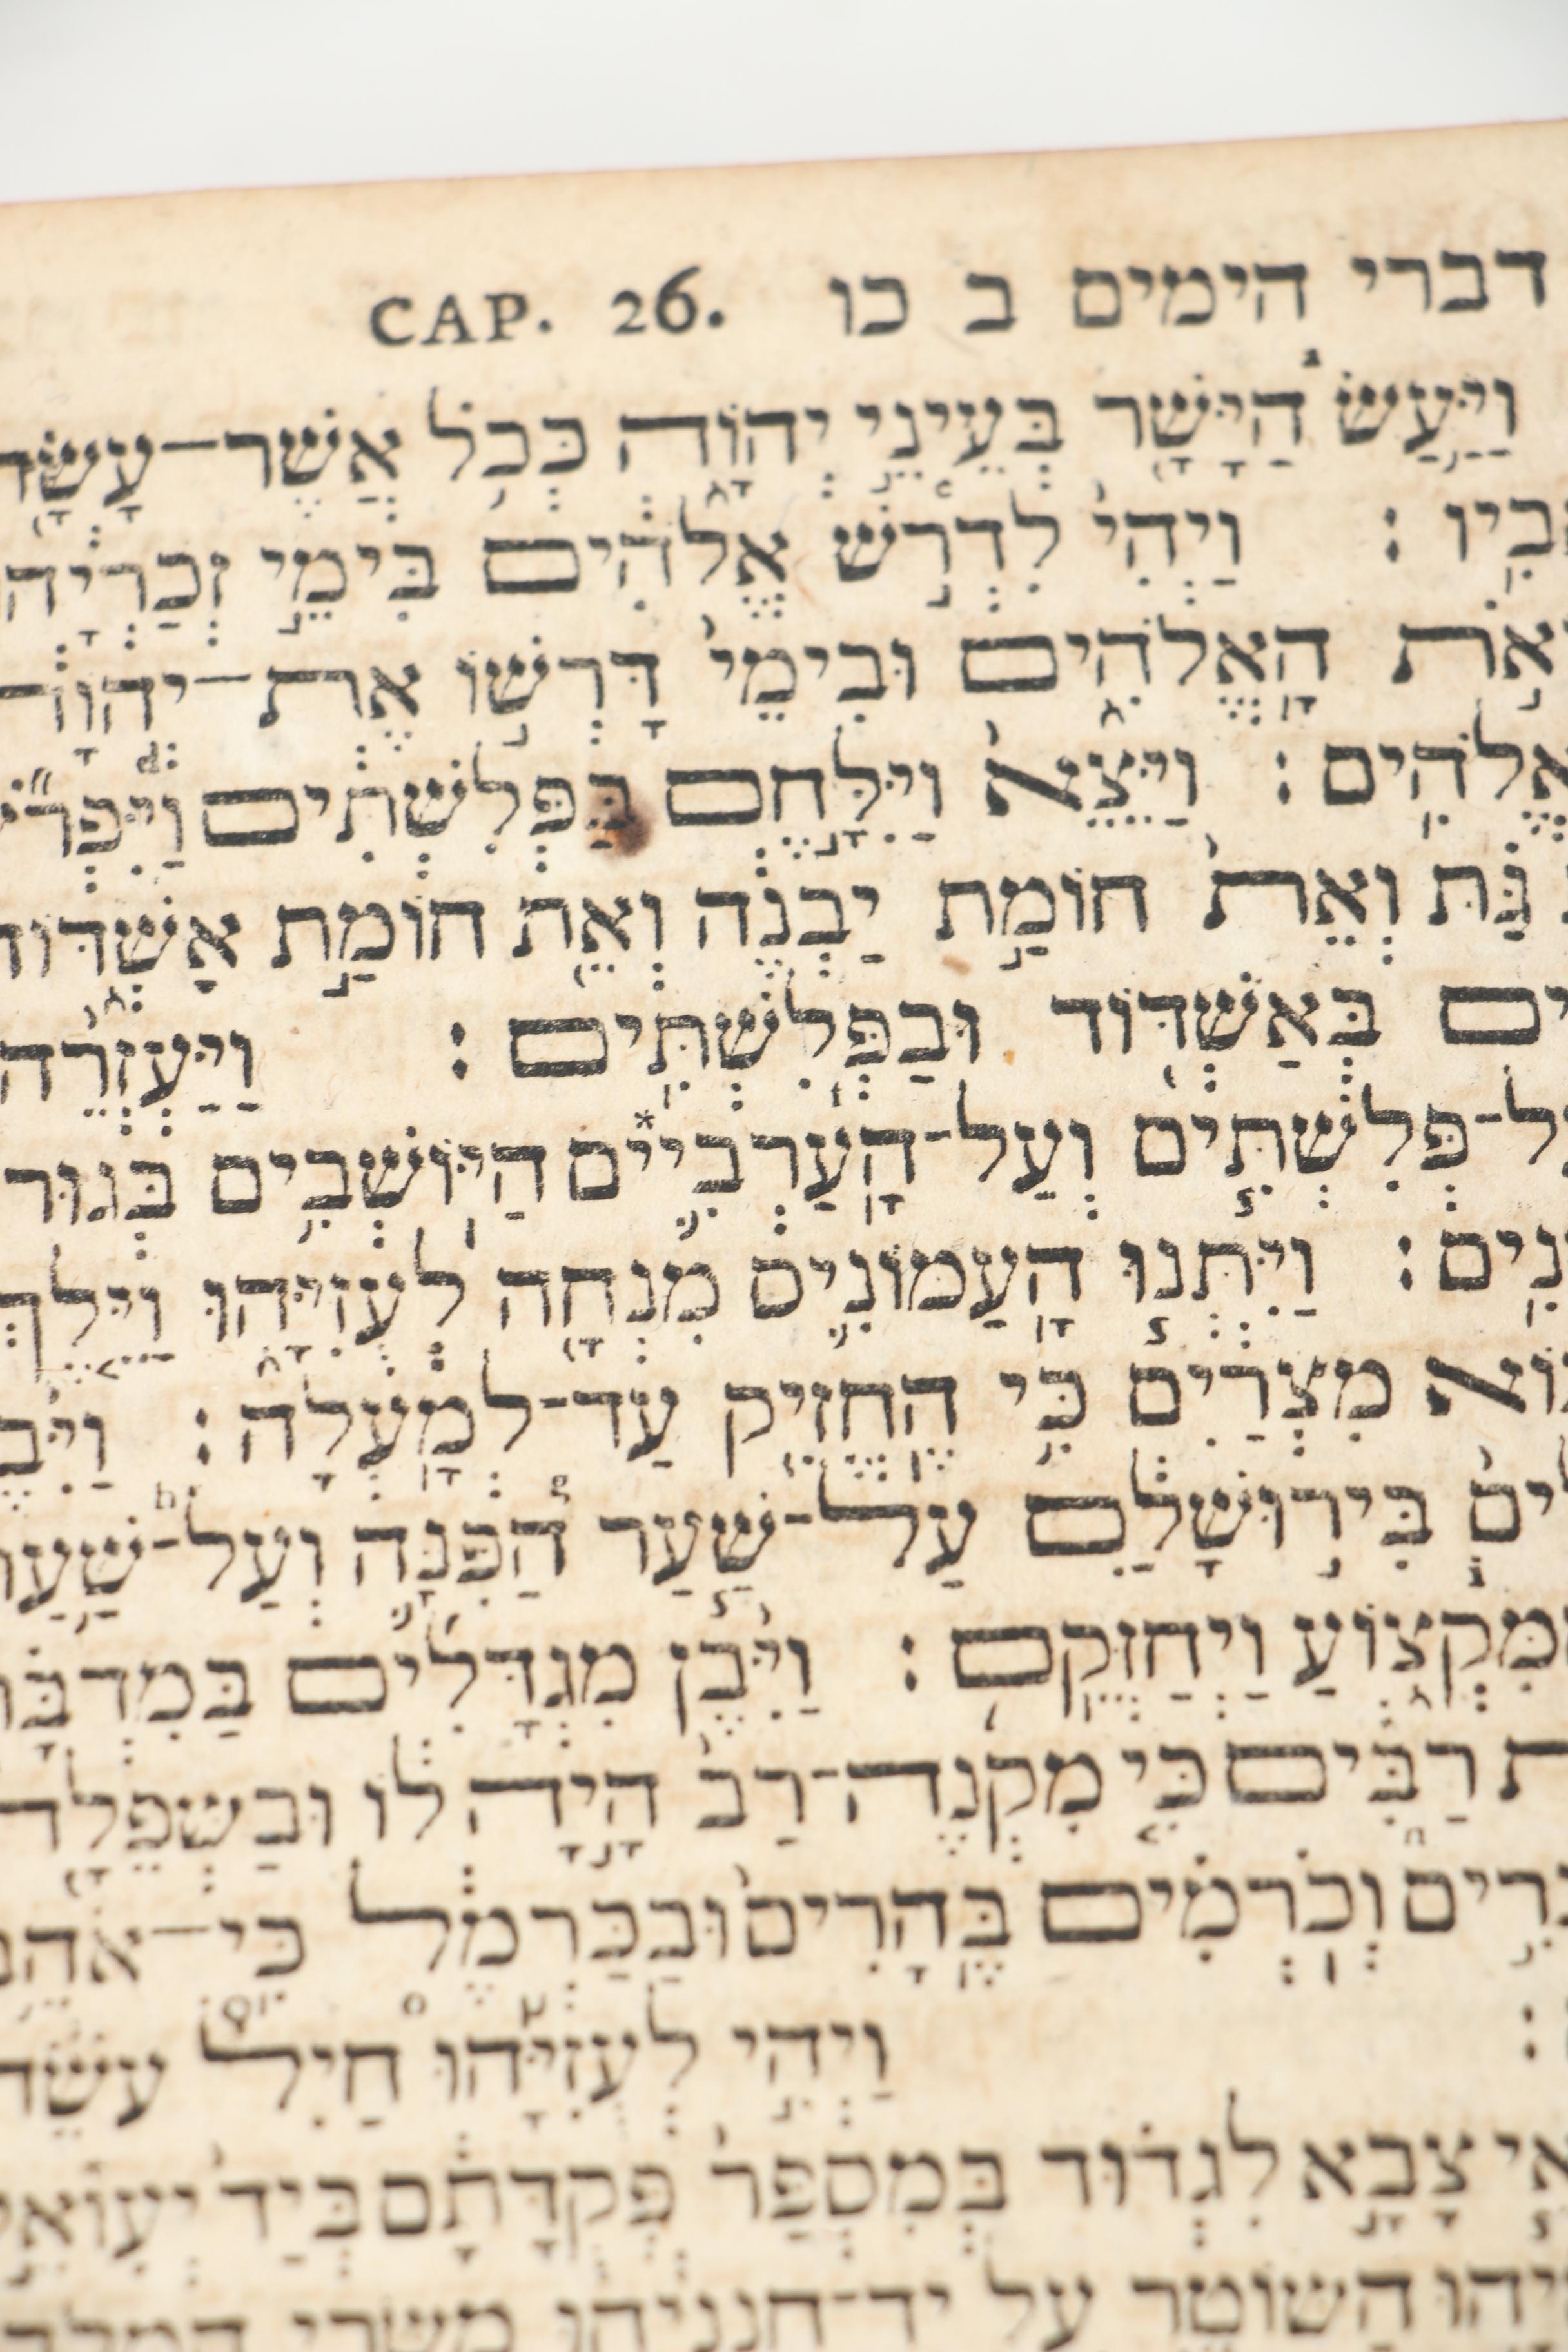 דברי הימים ב כו CAP. 26.
וַיַּעַשׂ הַיָּשָׁר בְּעֵינֵי יְהוָֹה כְּכֹל אֲשֶׁר־עָשָׂה
וַיְהִי לִדְרֹשׁ אֱלֹהִים בִּימֵי זְכַרְיָה
הָאֱלֹהִים וּבִימֵי דָּרְשׁוֹ אֶת־יְהוָֹה
אֱלֹהִים׃ וַיֵּצֵא וַיִּלָּחֶם בַּפְּלִשְׁתִּים וַיִּפְרֹץ
גַּת וְאֵת חוֹמַת יַבְנֶה וְאֵת חוֹמַת אַשְׁדּוֹד
בְּאַשְׁדּוֹד וּבַפְּלִשְׁתִּים׃ וַיַּעְזְרֵהוּ
פְּלִשְׁתִּים וְעַל־הָעַרְבִיִּים* הַיּוֹשְׁבִים בְּגוּר
וַיִּתְּנוּ הָעַמּוֹנִים מִנְחָה לְעֻזִּיָּהוּ וַיֵּלֶךְ
מִצְרַיִם כִּי הֶחֱזִיק עַד־לְמָעְלָה׃
בִּירוּשָׁלַםִ עַל־שַׁעַר הַפִּנָּה וְעַל־שַׁעַר
וַיְחַזְּקֵם׃ וַיִּבֶן מִגְדָּלִים בַּמִּדְבָּר
רַבִּים כִּי מִקְנֶה־רַב הָיָה לוֹ וּבַשְּׁפֵלָה
וְכֹרְמִים בֶּהָרִים וּבַכַּרְמֶל כִּי־אֹהֵב
וַיְהִי לְעֻזִּיָּהוּ חַיִל עֹשֵׂה
צָבָא לִגְדוּד בְּמִסְפַּר פְּקֻדָּתָם בְּיַד יְעִואֵל
הַשּׁוֹטֵר עַל יַד־חֲנַנְיָהוּ מִשָּׂרֵי